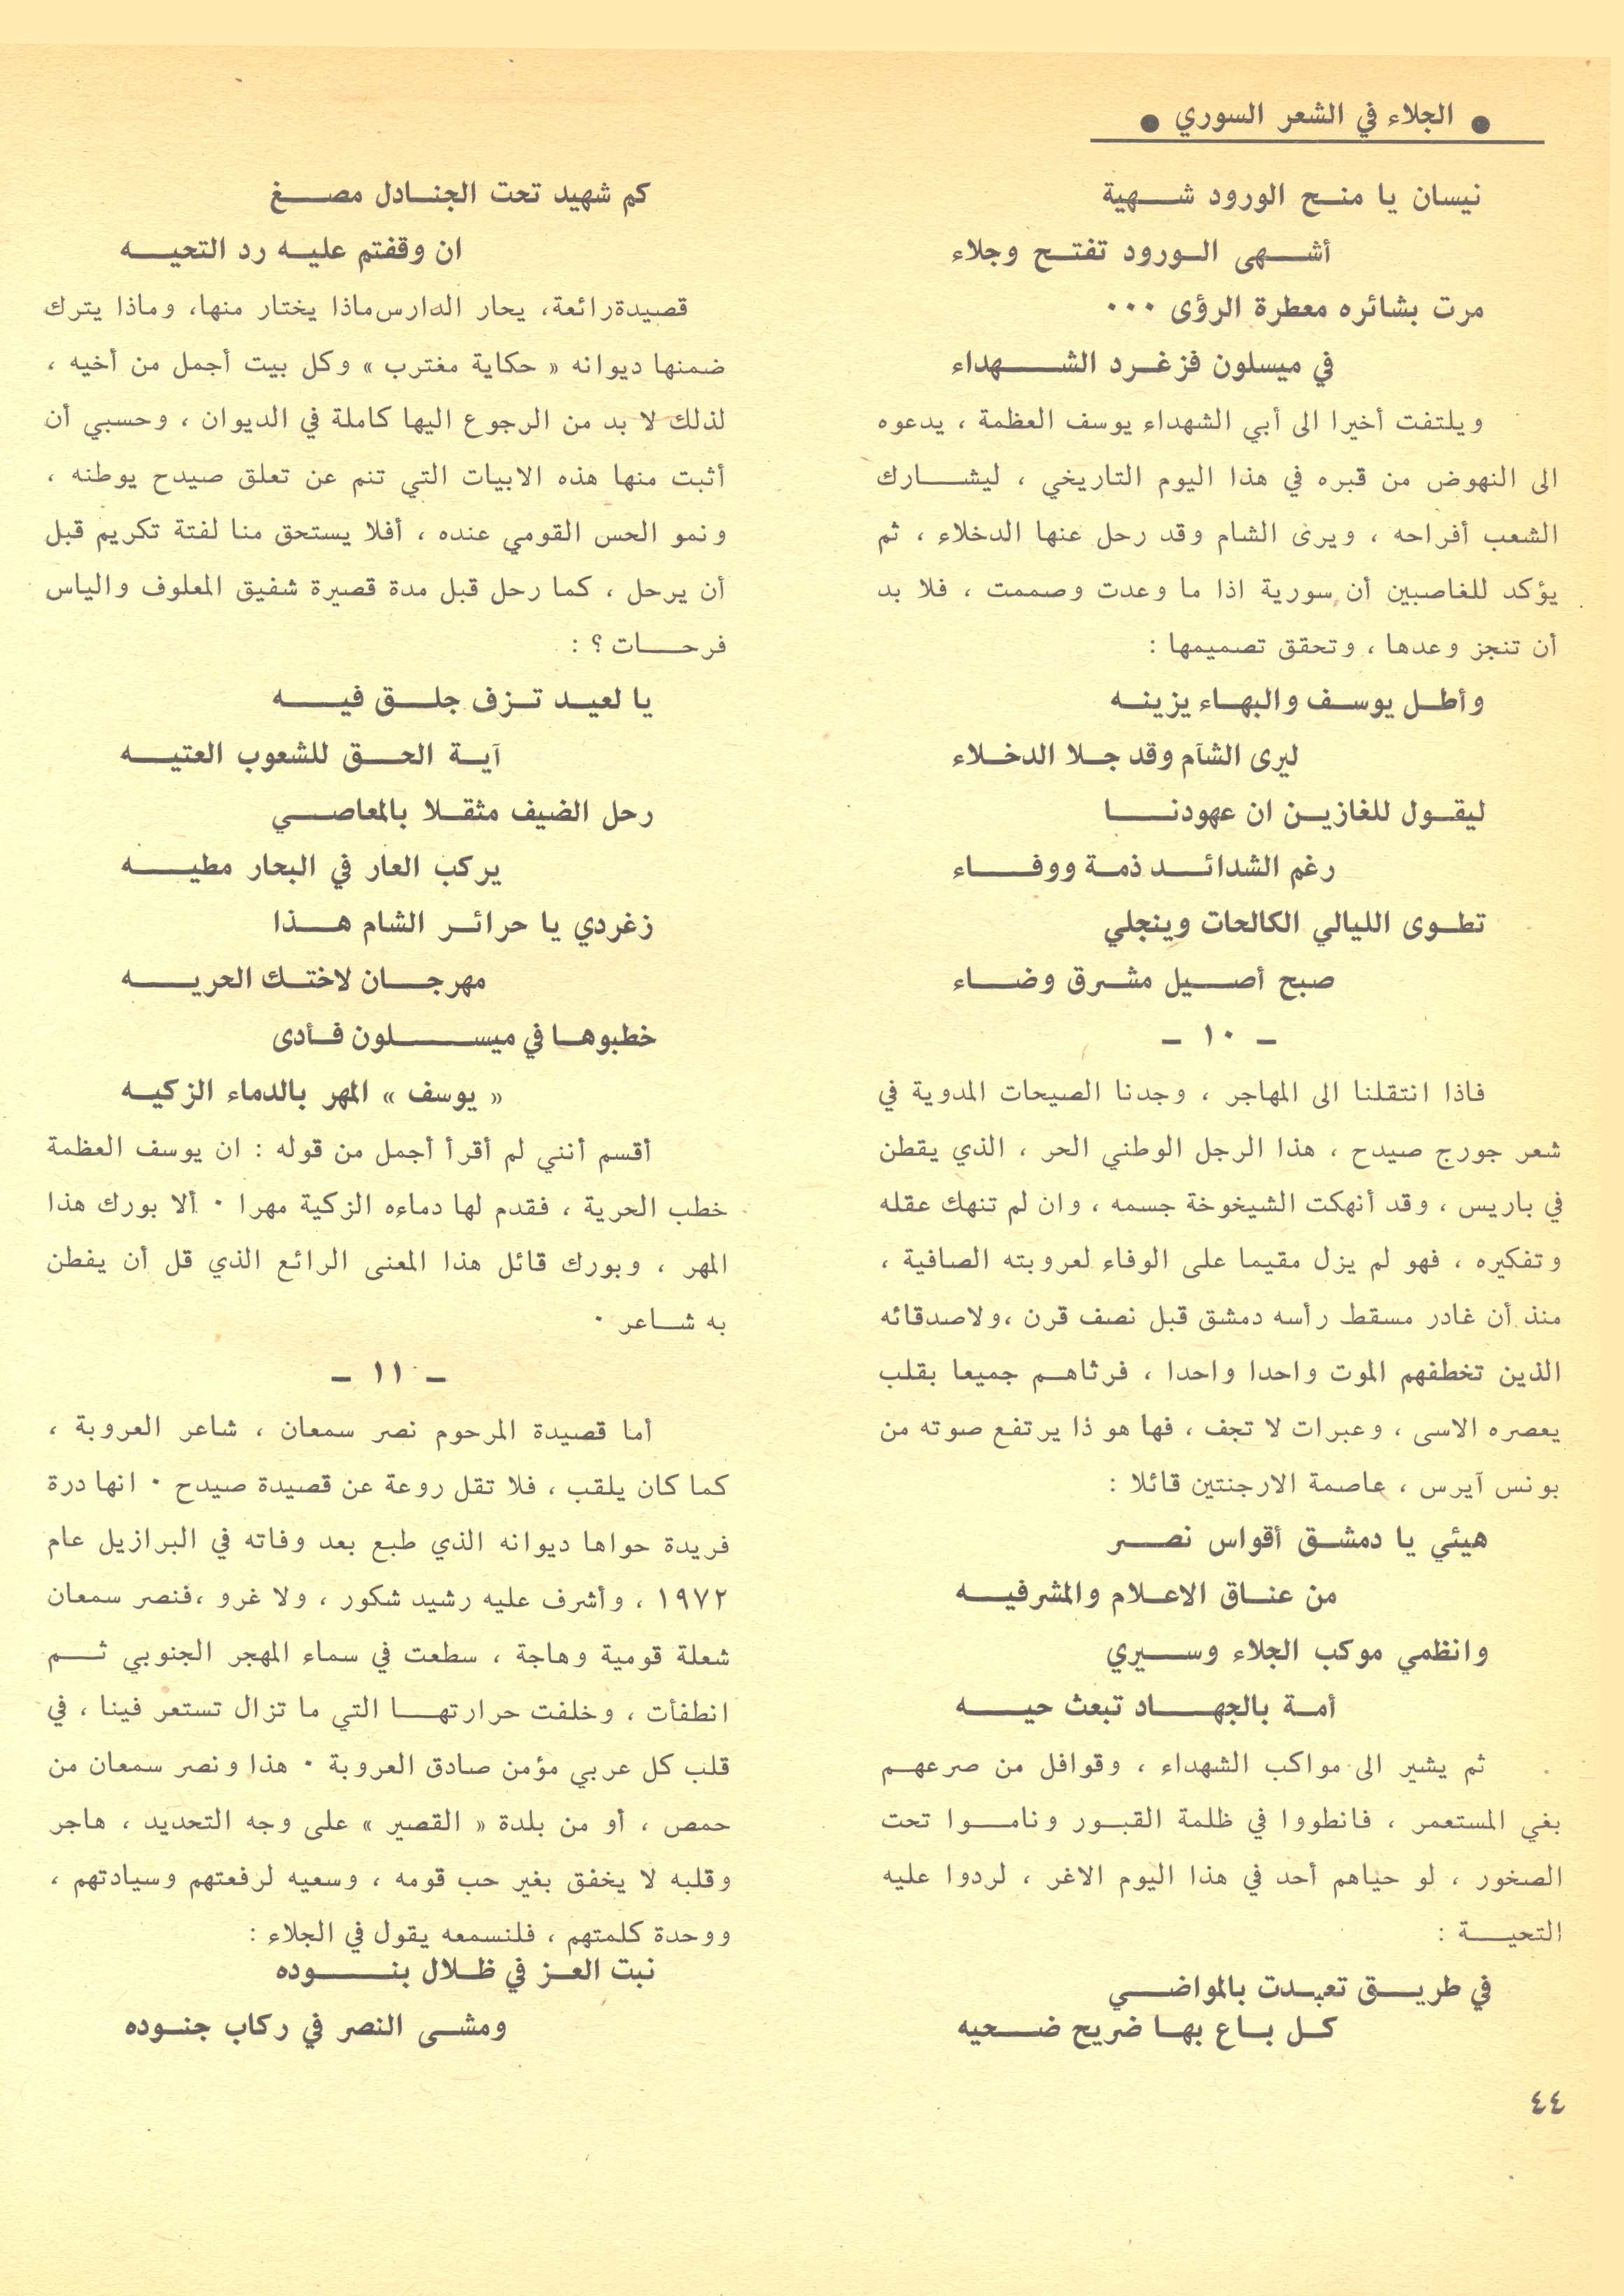 ● الجلاء في الشعر السوري ●
نيسان يا منح الورود شهية
أشهى الورود تفتح وجلاء
مرت بشائره معطرة الرؤى ٠٠٠
في ميسلون فزغرد الشهداء
ويلتفت أخيرا الى أبي الشهداء يوسف العظمة ، يدعوه
الى النهوض من قبره في هذا اليوم التاريخي ، ليشارك
الشعب أفراحه ، ويرى الشام وقد رحل عنها الدخلاء ، ثم
يؤكد للغاصبين أن سورية اذا ما وعدت وصممت ، فلا بد
أن تنجز وعدها ، وتحقق تصميمها :
وأطل يوسف والبهاء يزينه
ليرى الشآم وقد جلا الدخلاء
ليقول للغازين ان عهودنا
رغم الشدائد ذمة ووفاء
تطوى الليالي الكالحات وينجلي
صبح أصيل مشرق وضاء
– ١٠ –
فاذا انتقلنا الى المهاجر ، وجدنا الصيحات المدوية في
شعر جورج صيدح ، هذا الرجل الوطني الحر ، الذي يقطن
في باريس ، وقد أنهكت الشيخوخة جسمه ، وان لم تنهك عقله
وتفكيره ، فهو لم يزل مقيما على الوفاء لعروبته الصافية ،
منذ أن غادر مسقط رأسه دمشق قبل نصف قرن ،ولاصدقائه
الذين تخطفهم الموت واحدا واحدا ، فرثاهم جميعا بقلب
يعصره الاسى ، وعبرات لا تجف ، فها هو ذا يرتفع صوته من
بونس آيرس ، عاصمة الارجنتين قائلا :
هيئي يا دمشق أقواس نصر
من عناق الاعلام والمشرفيه
وانظمي موكب الجلاء وسيري
أمة بالجهاد تبعث حيه
ثم يشير الى مواكب الشهداء ، وقوافل من صرعهم
بغي المستعمر ، فانطووا في ظلمة القبور وناموا تحت
الصخور ، لو حياهم أحد في هذا اليوم الاغر ، لردوا عليه
التحية :
في طريق تعبدت بالمواضي
كل باع بها ضريح ضحيه
كم شهيد تحت الجنادل مصغ
ان وقفتم عليه رد التحيه
قصيدة رائعة، يحار الدارس ماذا يختار منها، وماذا يترك
ضمنها ديوانه « حكاية مغترب » وكل بيت أجمل من أخيه ،
لذلك لا بد من الرجوع اليها كاملة في الديوان ، وحسبي أن
أثبت منها هذه الابيات التي تنم عن تعلق صيدح يوطنه ،
ونمو الحس القومي عنده ، أفلا يستحق منا لفتة تكريم قبل
أن يرحل ، كما رحل قبل مدة قصيرة شفيق المعلوف والياس
فرحات ؟ :
يا لعيد تزف جلق فيه
آية الحق للشعوب العتيه
رحل الضيف مثقلا بالمعاصي
يركب العار في البحار مطيه
زغردي يا حرائر الشام هذا
مهرجان لاختك الحريه
خطبوها في ميسلون فأدى
« يوسف » المهر بالدماء الزكيه
أقسم أنني لم أقرأ أجمل من قوله : ان يوسف العظمة
خطب الحرية ، فقدم لها دماءه الزكية مهرا ٠ ألا بورك هذا
المهر ، وبورك قائل هذا المعنى الرائع الذي قل أن يفطن
به شاعر ٠
– ١١ –
أما قصيدة المرحوم نصر سمعان ، شاعر العروبة ،
كما كان يلقب ، فلا تقل روعة عن قصيدة صيدح ٠ انها درة
فريدة حواها ديوانه الذي طبع بعد وفاته في البرازيل عام
١٩٧٢ ، وأشرف عليه رشيد شكور ، ولا غرو ،فنصر سمعان
شعلة قومية وهاجة ، سطعت في سماء المهجر الجنوبي ثم
انطفأت ، وخلفت حرارتها التي ما تزال تستعر فينا ، في
قلب كل عربي مؤمن صادق العروبة ٠ هذا ونصر سمعان من
حمص ، أو من بلدة « القصير » على وجه التحديد ، هاجر
وقلبه لا يخفق بغير حب قومه ، وسعيه لرفعتهم وسيادتهم ،
ووحدة كلمتهم ، فلنسمعه يقول في الجلاء :
نبت العز في ظلال بنوده
ومشى النصر في ركاب جنوده
٤٤